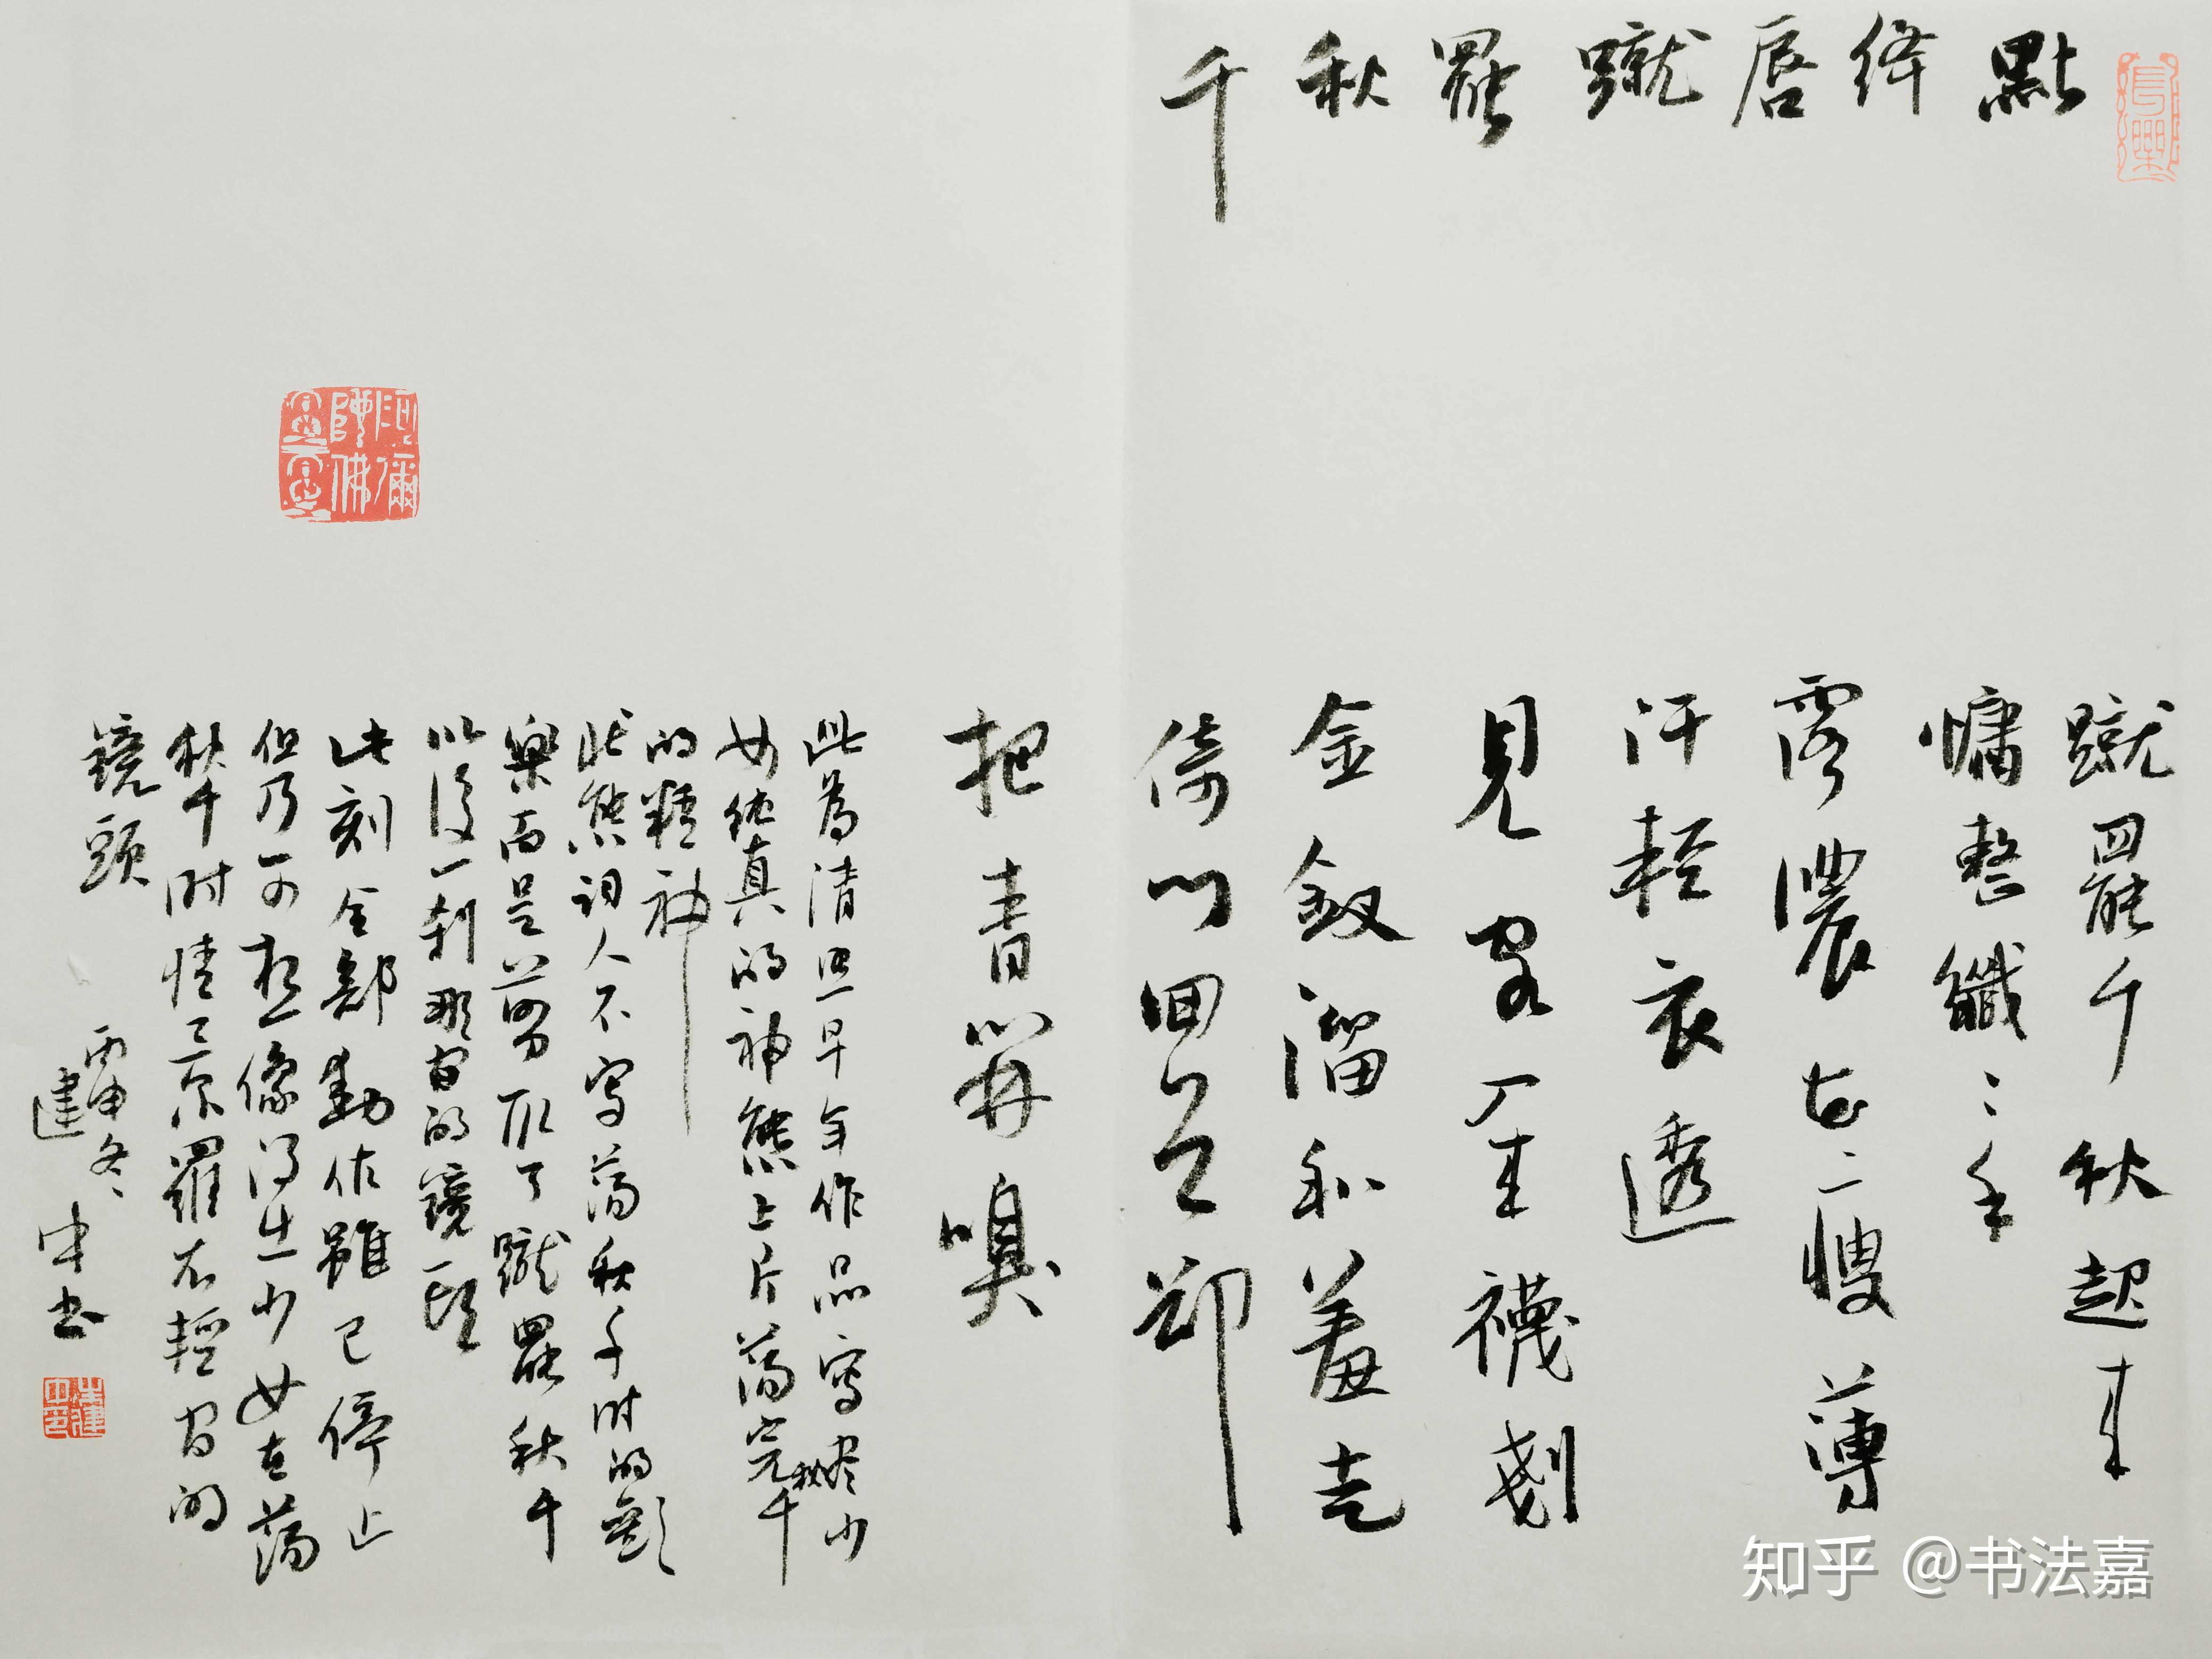 點绛唇蹴罷秋千
蹴罷千秋起来
慵整纖〻手
露濃花瘦薄
汗輕衣透
見客入来襪剗
金釵溜和羞走
倚门回首却
把青嗅
此為清照早年作品寫盡少
女純真的神態上片蕩完秋千
的精神
此態詞人不寫蕩秋千时的歡
樂而是剪取了蹴罷秋千
以後一刹那间的鏡頭
此刻全部動作雖已停止
但乃可想像得出少女在蕩
秋千时情景羅衣輕的
鏡頭
丙申冬
建中书
阿彌陀佛
知乎 @书法嘉